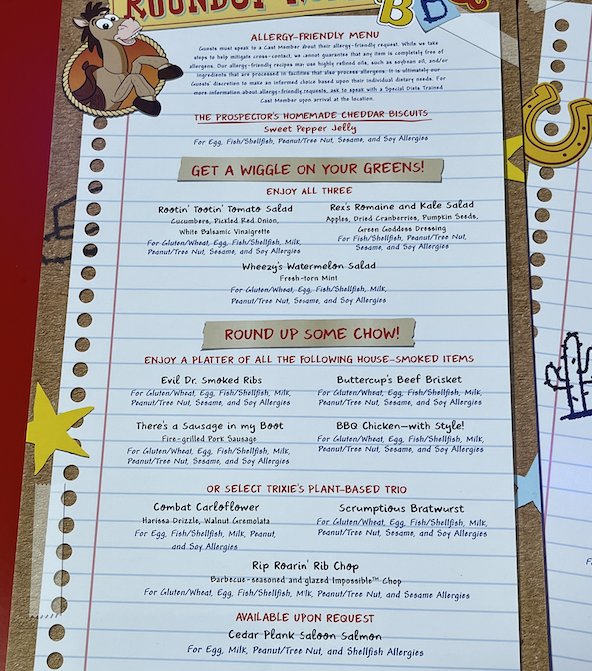 ROUNDUP
B B
ALLERGY-FRIENDLY MENU
Guests must speak to a Cast Member about their allergy-friendly request. While we take
steps to help mitigate cross-contact, we cannot guarantee that any item is completely free of
allergens. Our allergy-friendly recipes may use highly refined oils, such as soybean oil, and/or
ingredients that are processed in facilities that also process allergens. It is ultimately our
Guests' discretion to make an informed choice based upon their individual dietary needs. For
more information about allergy-friendly requests, ask to speak with a Special Diets Trained
Cast Member upon arrival at the location.
THE PROSPECTOR'S HOMEMADE CHEDDAR BISCUITS
Sweet Pepper Jelly
For Egg, Fish/Shellfish, Peanut/Tree Nut, Sesame, and Soy Allergies
GET A WIGGLE ON YOUR GREENS!
ENJOY ALL THREE
Rootin' Tootin' Tomato Salad
Cucumbers, Pickled Red Onion,
White Balsamic Vinaigrette
For Gluten/Wheat, Egg, Fish/Shellfish, Milk,
Peanut/Tree Nut, Sesame, and Soy Allergies
Rex's Romaine and Kale Salad
Apples, Dried Cranberries, Pumpkin Seeds,
Green Goddess Dressing
For Fish/Shellfish, Peanut/Tree Nut,
Sesame, and Soy Allergies
Wheezy's Watermelon Salad
Fresh-torn Mint
For Gluten/Wheat, Egg, Fish/Shellfish, Milk,
Peanut/Tree Nut, Sesame, and Soy Allergies
ROUND UP SOME CHOW!
ENJOY A PLATTER OF ALL THE FOLLOWING HOUSE-SMOKED ITEMS
Evil Dr. Smoked Ribs
For Gluten/Wheat, Egg, Fish/Shellfish, Milk,
Peanut/Tree Nut, Sesame, and Soy Allergies
Buttercup's Beef Brisket
For Gluten/Wheat, Egg, Fish/Shellfish, Milk,
Peanut/Tree Nut, Sesame, and Soy Allergies
There's a Sausage in my Boot
Fire-grilled Pork Sausage
For Gluten/Wheat, Egg, Fish/Shellfish, Milk,
Peanut/Tree Nut, Sesame, and Soy Allergies
BBQ Chicken—with Style!
For Gluten/Wheat, Egg, Fish/Shellfish, Milk,
Peanut/Tree Nut, Sesame, and Soy Allergies
OR SELECT TRIXIE'S PLANT-BASED TRIO
Combat Carloflower
Harissa Drizzle, Walnut Gremolata
For Egg, Fish/Shellfish, Milk, Peanut,
and Soy Allergies
Scrumptious Bratwurst
For Gluten/Wheat, Egg, Fish/Shellfish, Milk,
Peanut/Tree Nut, Sesame, and Soy Allergies
Rip Roarin' Rib Chop
Barbecue-seasoned and glazed Impossible™ Chop
For Gluten/Wheat, Egg, Fish/Shellfish, Milk, Peanut/Tree Nut, and Sesame Allergies
AVAILABLE UPON REQUEST
Cedar Plank Saloon Salmon
For Egg, Milk, Peanut/Tree Nut, and Shellfish Allergies